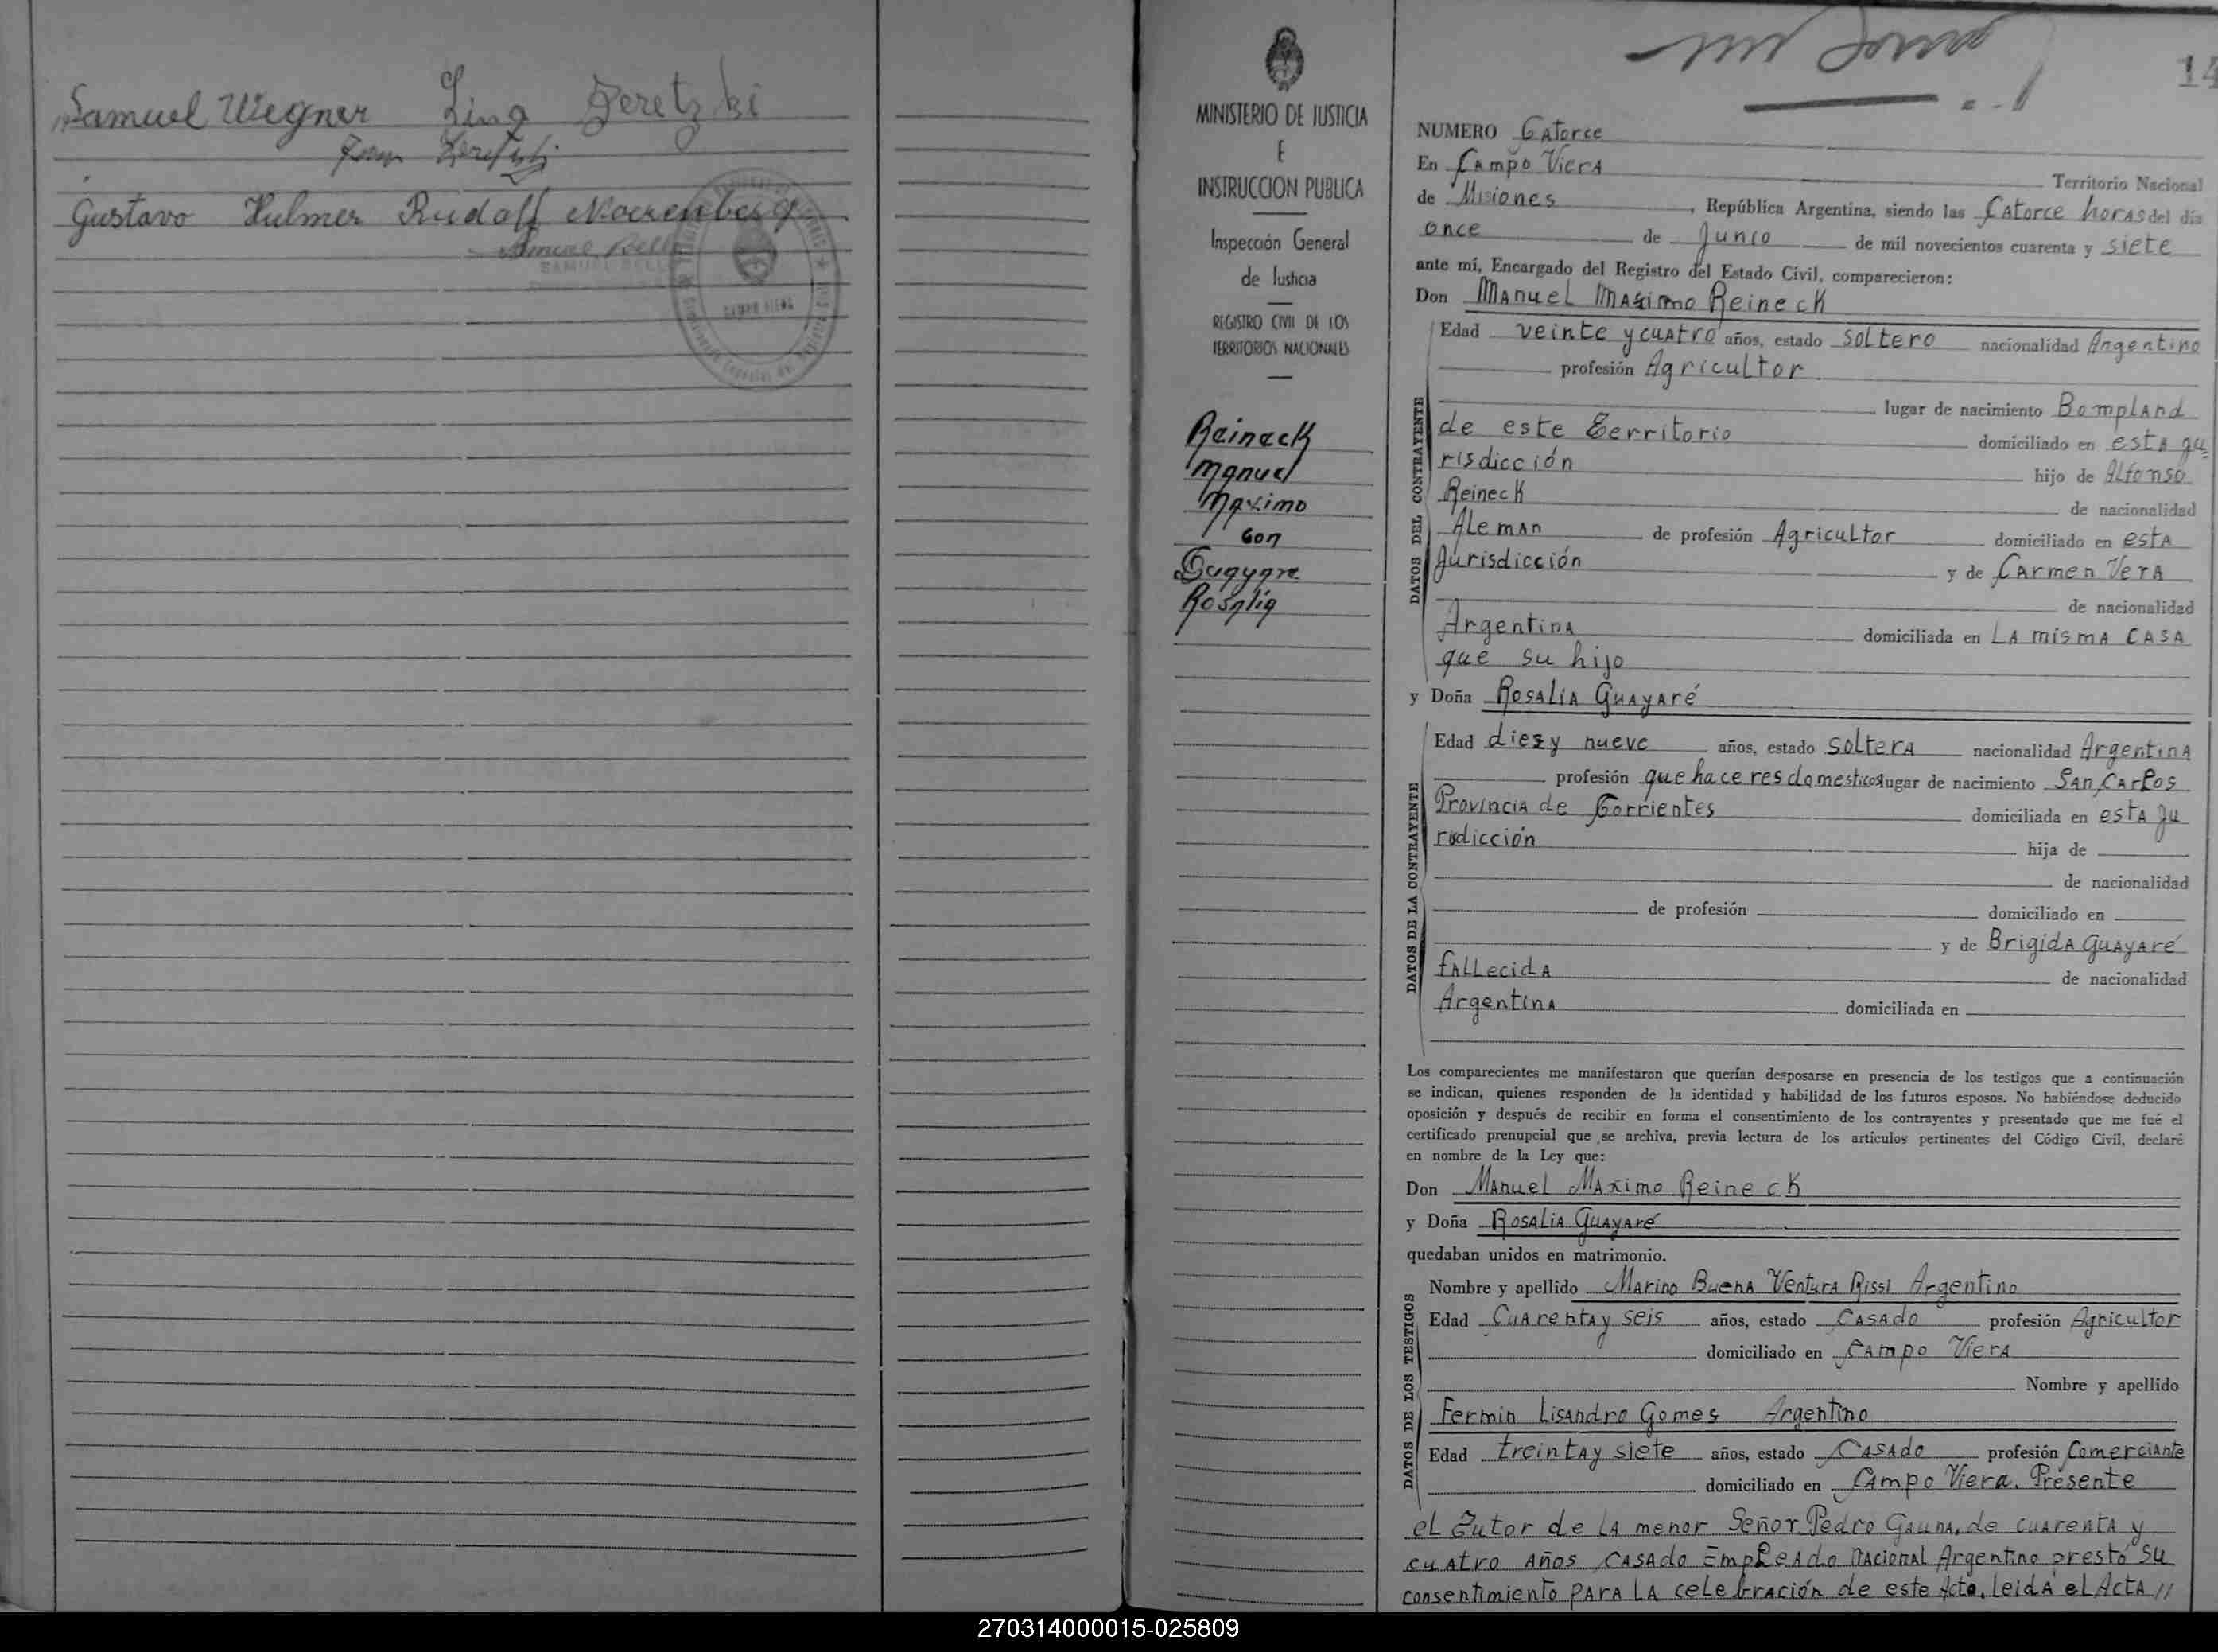 Samuel Wegner Lina Zeretzki
Gustavo Hulmer Rudolf
SAMUEL BELL
CAMPO VIERA
MINISTERIO DE JUSTICIA
E
INSTRUCCION PUBLICA
Inspección General
de Justicia
REGISTRO CIVIL DE LOS
TERRITORIOS NACIONALES
Reineck
Manuel
Maximo
con
Rosalia
14
NUMERO Catorce
En Campo Viera Territorio Nacional
de Misiones, República Argentina, siendo las Catorce horas del día
once de Junio de mil novecientos cuarenta y siete
ante mí, Encargado del Registro del Estado Civil, comparecieron:
Don Manuel Maximo Reineck
Edad veinte y cuatro años, estado soltero nacionalidad Argentino
profesión Agricultor
lugar de nacimiento Bompland
de este Territorio domiciliado en esta Ju
risdicción hijo de Alfonso
Reineck de nacionalidad
Aleman de profesión Agricultor domiciliado en esta
Jurisdicción y de Carmen Vera
de nacionalidad
Argentina domiciliada en La misma casa
que su hijo
DATOS DEL CONTRAYENTE
y Doña Rosalia Guayaré
Edad diez y nueve años, estado soltera nacionalidad Argentina
profesión que haceres domesticos lugar de nacimiento San Carlos
Provincia de Corrientes domiciliada en esta Ju
risdicción hija de
de nacionalidad
de profesión domiciliado en
y de Brigida Guayaré
fallecida de nacionalidad
Argentina domiciliada en
DATOS DE LA CONTRAYENTE
Los comparecientes me manifestaron que querían desposarse en presencia de los testigos que a continuación
se indican, quienes responden de la identidad y habilidad de los futuros esposos. No habiéndose deducido
oposición y después de recibir en forma el consentimiento de los contrayentes y presentado que me fué el
certificado prenupcial que se archiva, previa lectura de los artículos pertinentes del Código Civil, declaré
en nombre de la Ley que:
Don Manuel Maximo Reineck
y Doña Rosalia Guayaré
quedaban unidos en matrimonio.
Nombre y apellido Marino Buena Ventura Rissi Argentino
Edad Cuarenta y seis años, estado Casado profesión Agricultor
domiciliado en Campo Viera
Nombre y apellido
Fermin Lisandro Gomes Argentino
Edad treinta y siete años, estado Casado profesión Comerciante
domiciliado en Campo Viera. Presente
DATOS DE LOS TESTIGOS
el Tutor de la menor Señor Pedro Gauna, de cuarenta y
cuatro años casado Empleado nacional Argentino prestó su
consentimiento para la celebración de este Acto. Leida el Acta //
270314000015-025809